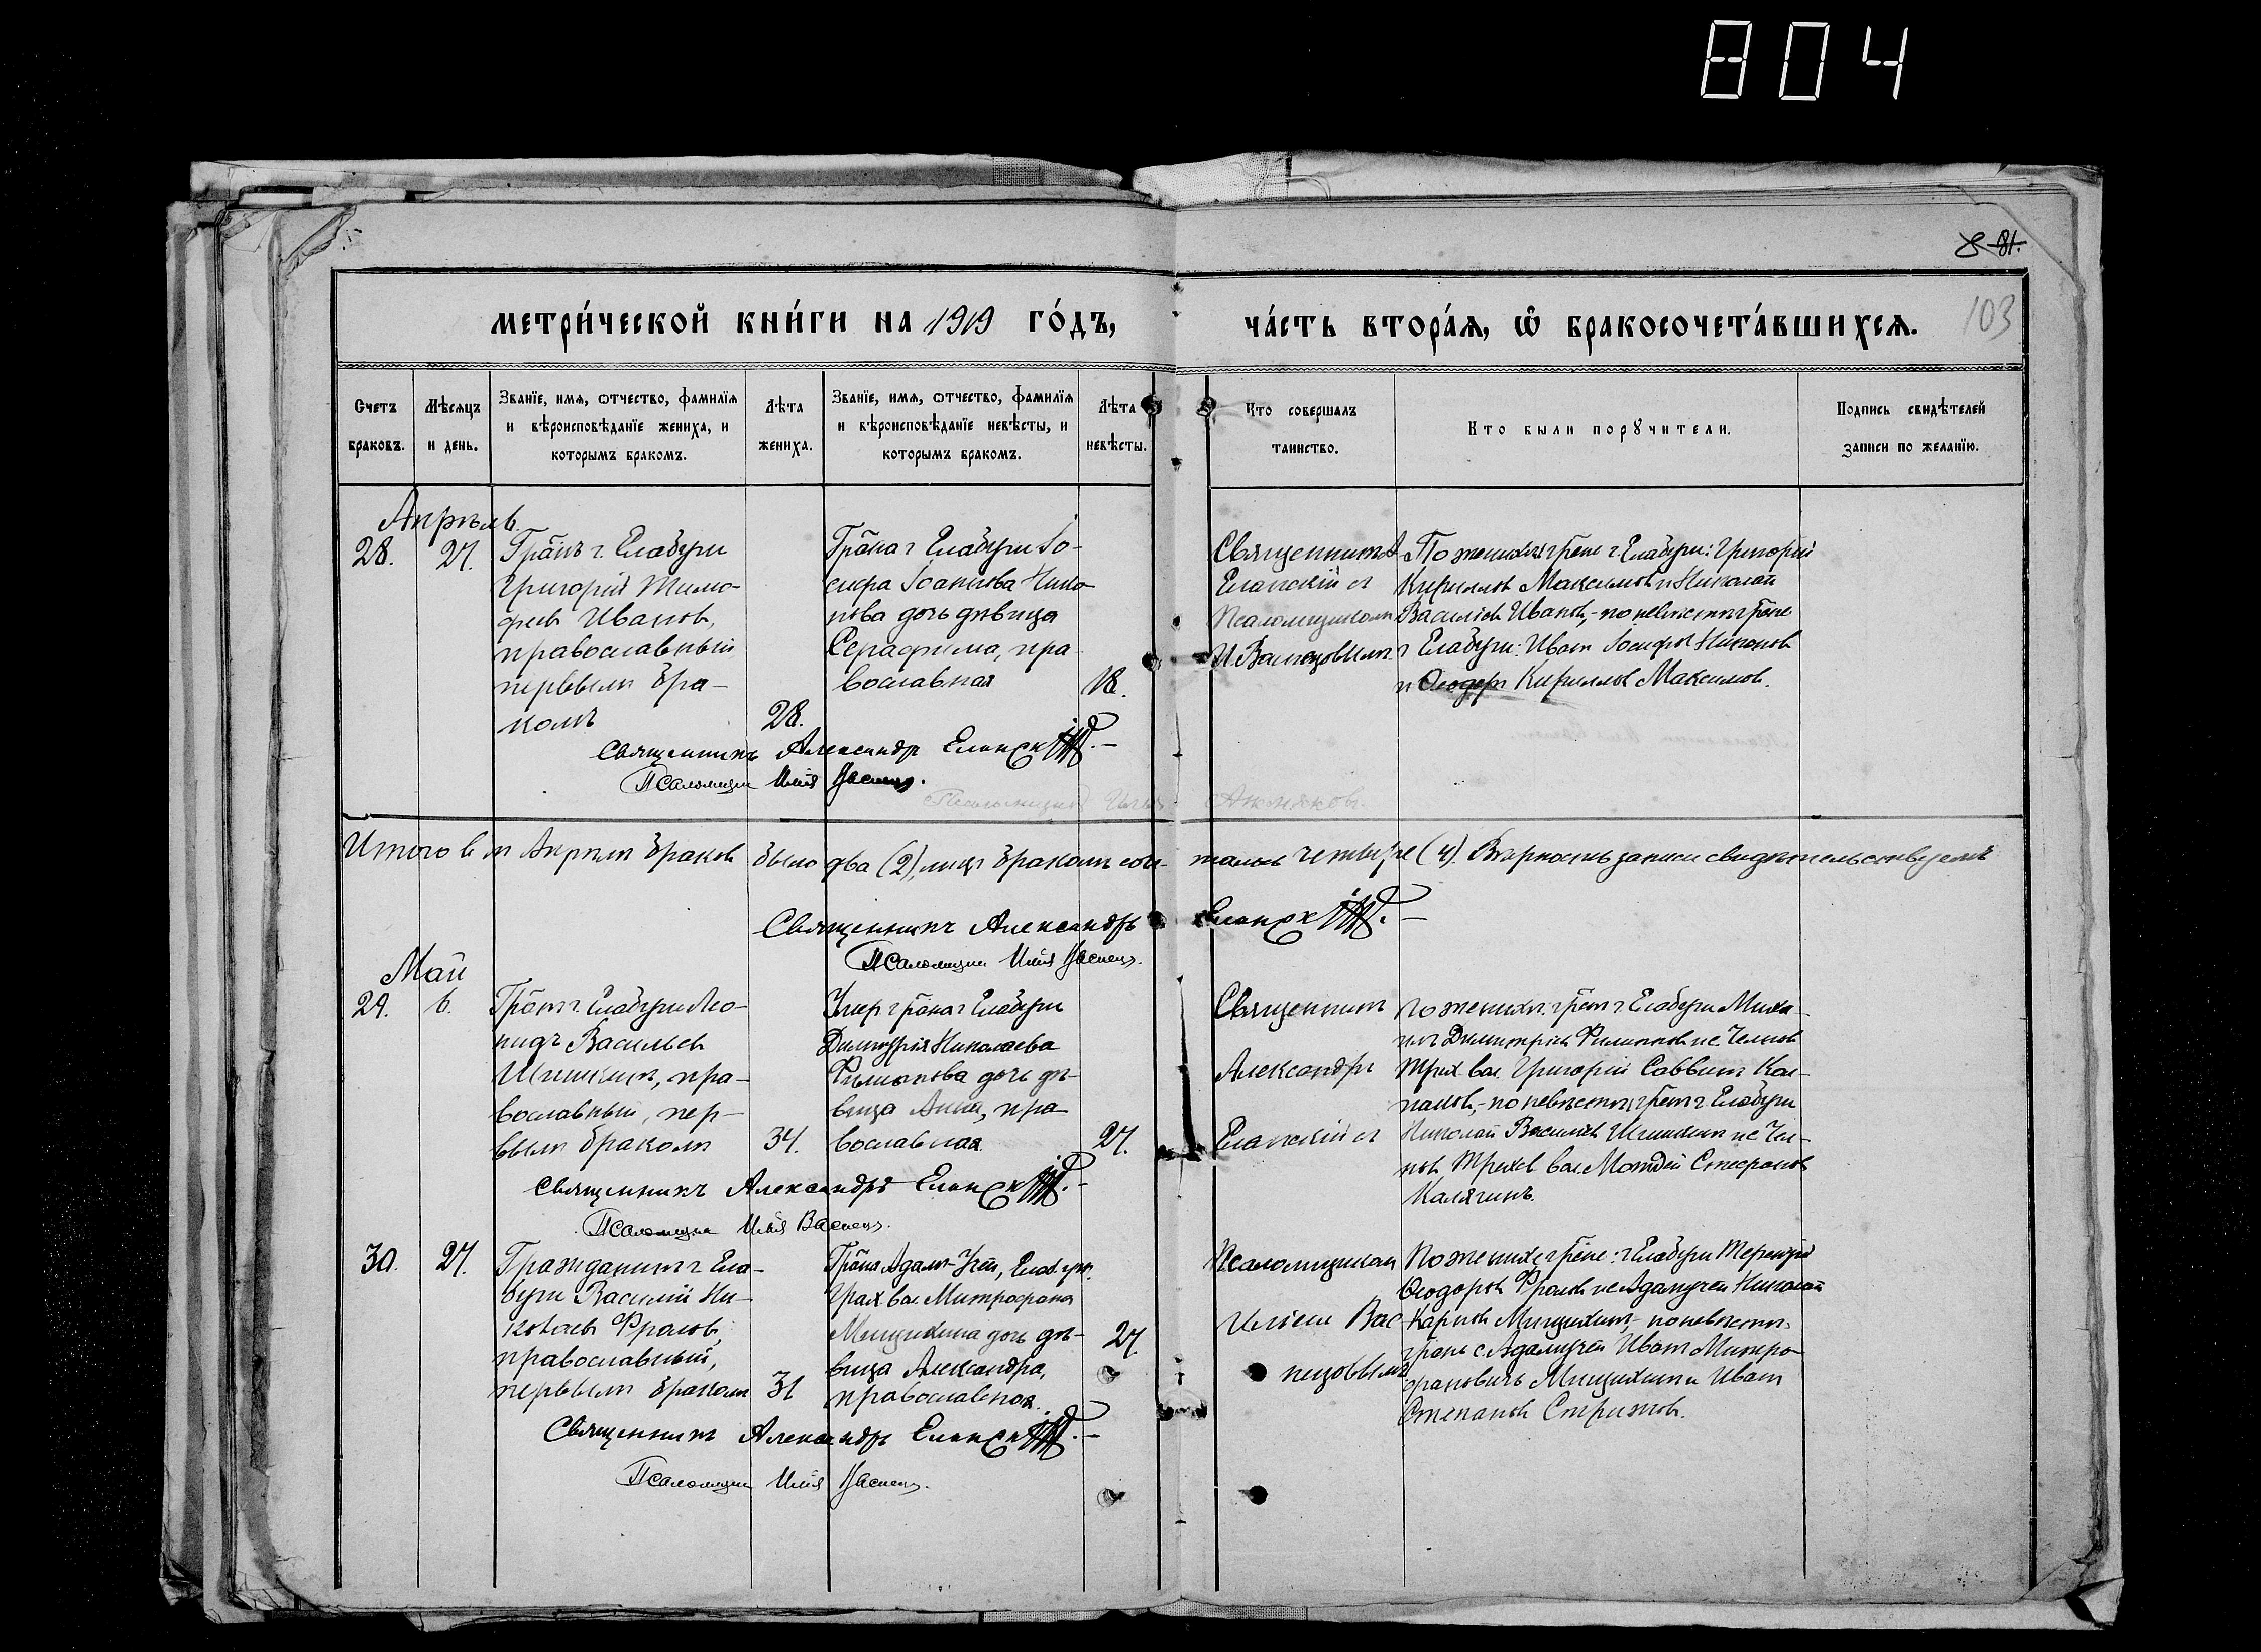 804
8 81.
метри́ческой кни́ги на 1919 го́дъ,
ча́сть втора́я, ѿ бракосочета́вшихся.
103
Счетъ браковъ.
Мѣсяцъ и день.
Званїе, имя, ѻтчество, фамилїя
и вѣроисповѣданїе жениха, и
которымъ бракомъ.
Лѣта жениха.
Званїе, имя, ѻтчество, фамилїя
и вѣроисповѣданїе невѣсты, и
которымъ бракомъ.
Лѣта невѣсты.
Кто совершалъ
таинство.
Кто были порꙋчители.
Подпись свидѣтелей
записи по желанїю.
Апрѣль
28.
27.
Гражд. г. Елабуги
Григорій Тимо-
феев Иванов,
православный
первым бра-
комъ
28.
Грана г Елабуги Іо-
сифа Іоаннова Нико-
нова дочь дѣвица
Серафима, пра
вославная
18.
Священник А
Еланскій с
Псаломщиком
И. Васнецовым
По женихѣ гр-не г. Елабуги: Григорій
Кириллов Максимов и Николай
Васильев Иванов, - по невѣстѣ гр-не
г Елабуги: Иван Іосифов Никонов
и Ѳеодор Кириллов Максимов.
Священникъ Александр Еланскій.
Псаломщик Илія Васнец.
Итого в м Апрѣлѣ браков было два (2), лиц браком соче-
талось четыре (4). Вѣрность записи свидѣтельствуемъ
Священникъ Александръ Еланскій.
Псаломщик Илія Васнец.
Май
29.
6.
Гр-нг. Елабуги Лео-
нидъ Васильев
Шишкин, пра-
вославный, пер-
вым браком
34.
Умер г рана г Елабуги
Димитрія Николаева
Филиппова дочь дѣ-
вица Анна, пра
вославная.
27.
Священник
Александръ
Еланскій с
по женихѣ: гр-нг. Елабуги Миха-
ил Димитріев Филиппов и с Челнов
Трех вол. Григорій Саввин Кол-
паков, - по невѣстѣ гр-нг Елабуги
Николай Васильев Шишкин и с Чел-
нов Трехсв вол. Матвей Стефанов
Калягинъ.
Священникъ Александръ Еланскій.
Псаломщик Илія Васнец.
30.
27.
Гражданин г Ела-
буги Василій Ни-
колаев Фролов,
православный,
первым браком
31
Грана Адам-Учей, Елаб. у.
Грах вол. Митрофана
Мищихина дочь дѣ-
вица Александра,
православная.
27
Псаломщиком
Иліем Вас
нецовым
По женихѣ гр-не: г Елабуги Терентій
Ѳеодоров Фролов и с Адамучей Николай
Карпов Мищихин, - по невѣстѣ:
гране с Адамучей Иван Митро-
фанович Мищихин и Иван
Степанов Стрижов.
Священник Александръ Еланскій.
Псаломщик Илія Васнец.